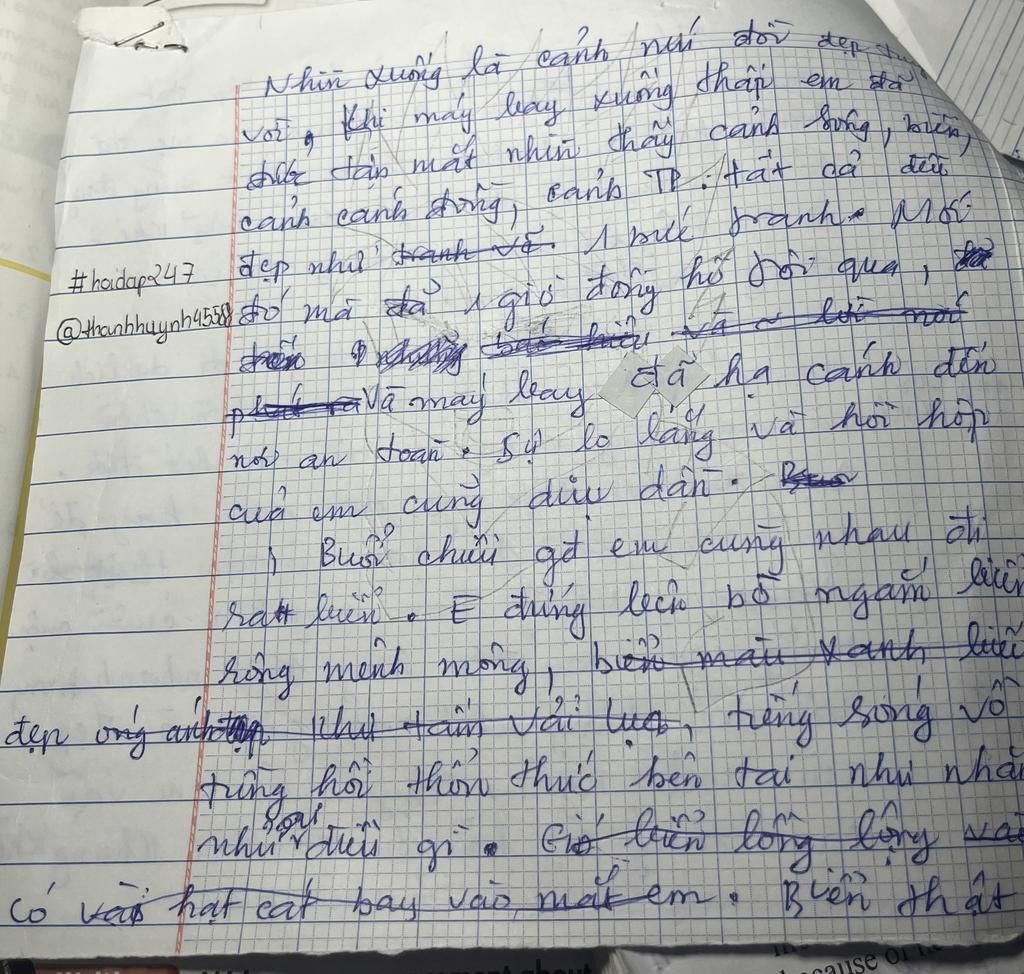 Nhìn xuống là cảnh núi đồi đẹp
vời, Khi máy bay xuống thấp em đã
tận mắt nhìn thấy cảnh sông, biển,
cảnh cánh đồng, cảnh TP. tất cả đều
đẹp như tranh vẽ 1 bức tranh. Mới
#hoidap247
đó mà đã 1 giờ đồng hồ trôi qua,
@thanhhuynh4558
và lời nói
Và máy bay đã hạ cánh đến
nơi an toàn. Sự lo lắng và hồi hộp
của em cũng dịu dần.
Buổi chiều gđ em cùng nhau đi
ra biển. E đứng trên bờ ngắm biển
rộng mênh mông, biển màu xanh biếc
đẹp óng ánh như tấm vải lụa, tiếng sóng vỗ
từng hồi thổn thức bên tai như nhắn
nhủ với điều gì. Gió biển lồng lộng
có vài hạt cát bay vào mắt em. Biển thật
cause of